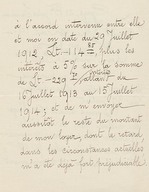 à l'accord intervenu entre elle
et moi en date du 29 Juillet
1912 Lt. 114 85 plus les
intérêts à 5% sur la somme
de Lt. 229 70 allant du
16 Juillet 1913 au 15 Juillet
1914; et de m'envoyer
aussitôt le reste du montant
de mon loyer, dont le retard,
dans les circonstances actuelles
m'a été déjà fort préjudiciable.